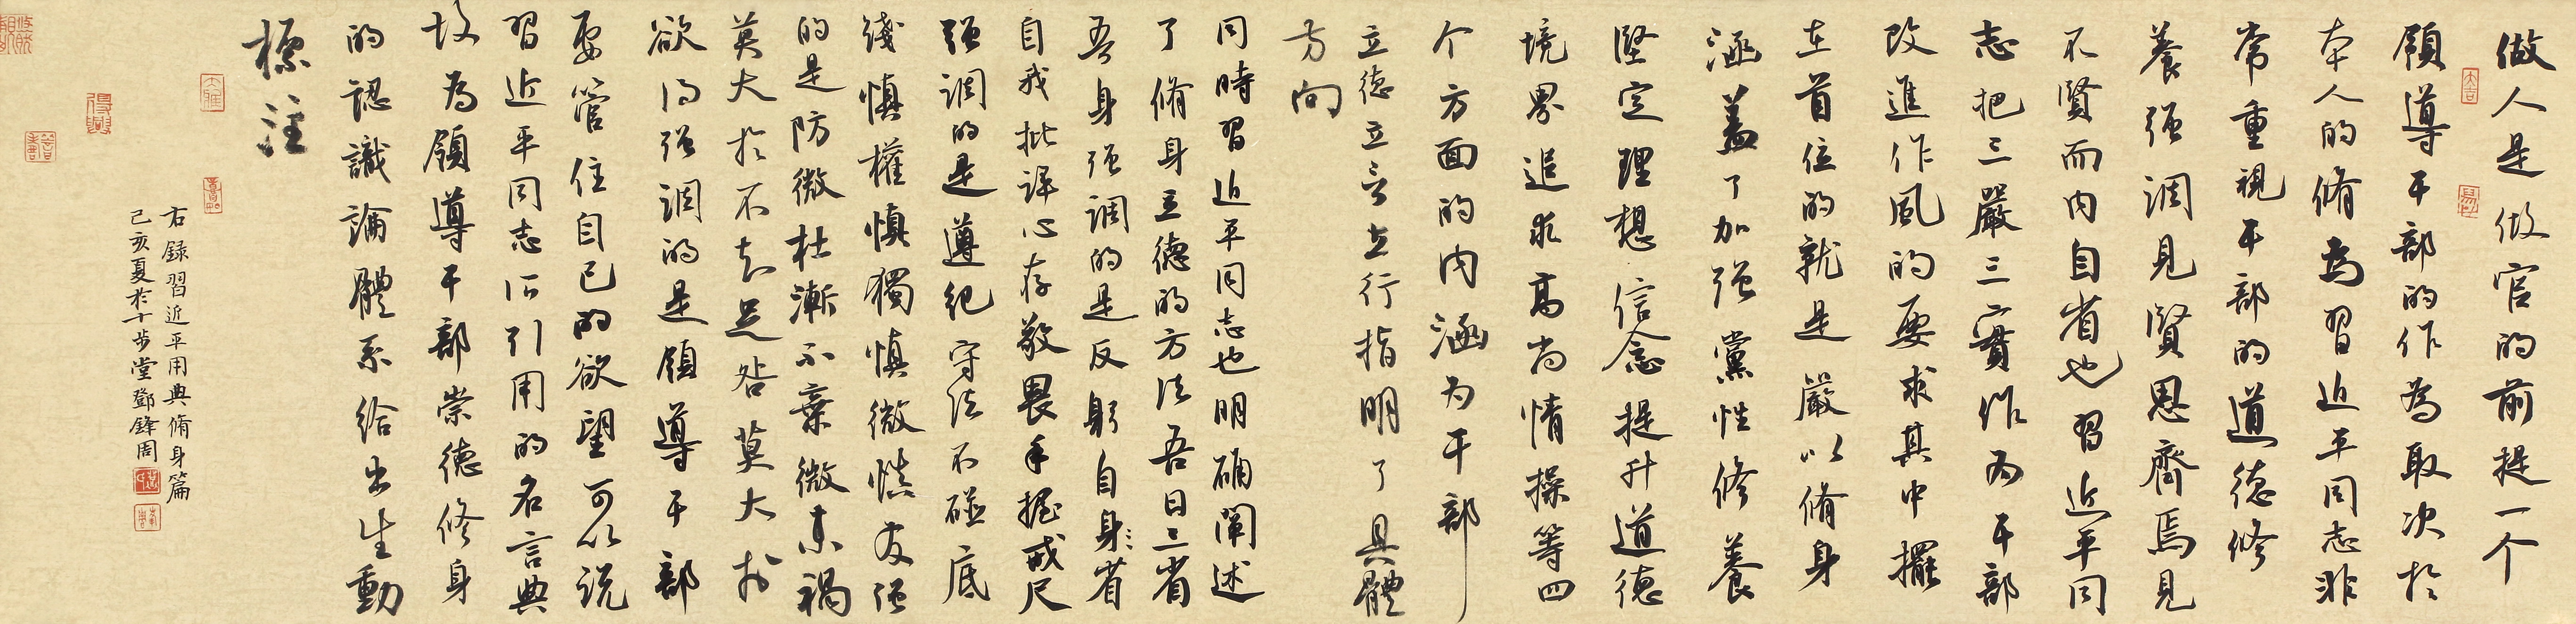 做人是做官的前提一个
領導干部的作為取次於
本人的脩為習近平同志非
常重視干部的道德修
養强調見賢思齊焉見
不賢而内自省也習近平同
志把三嚴三實作為干部
改進作風的要求其中擺
在首位的就是嚴以脩身
涵蓋了加强黨性修養
堅定理想信念提升道德
境界追求高尚情操等四
个方面的内涵为干部
立德立言立行指明了具體
方向
同時習近平同志也明确闡述
了脩身立德的方法吾日三省
吾身强調的是反躬自身省
自我批評心存敬畏手握戒尺
强調的是遵紀守法不碰底
綫慎權慎獨慎微慎友强
的是防微杜漸不棄微末禍
莫大於不知足咎莫大於
欲得强調的是領導干部
要管住自已的欲望可以説
習近平同志所引用的名言典
故為領導干部崇德修身
的認識論體系給出生動
標注
右錄習近平用典脩身篇
己亥夏於十步堂鄧鋒周